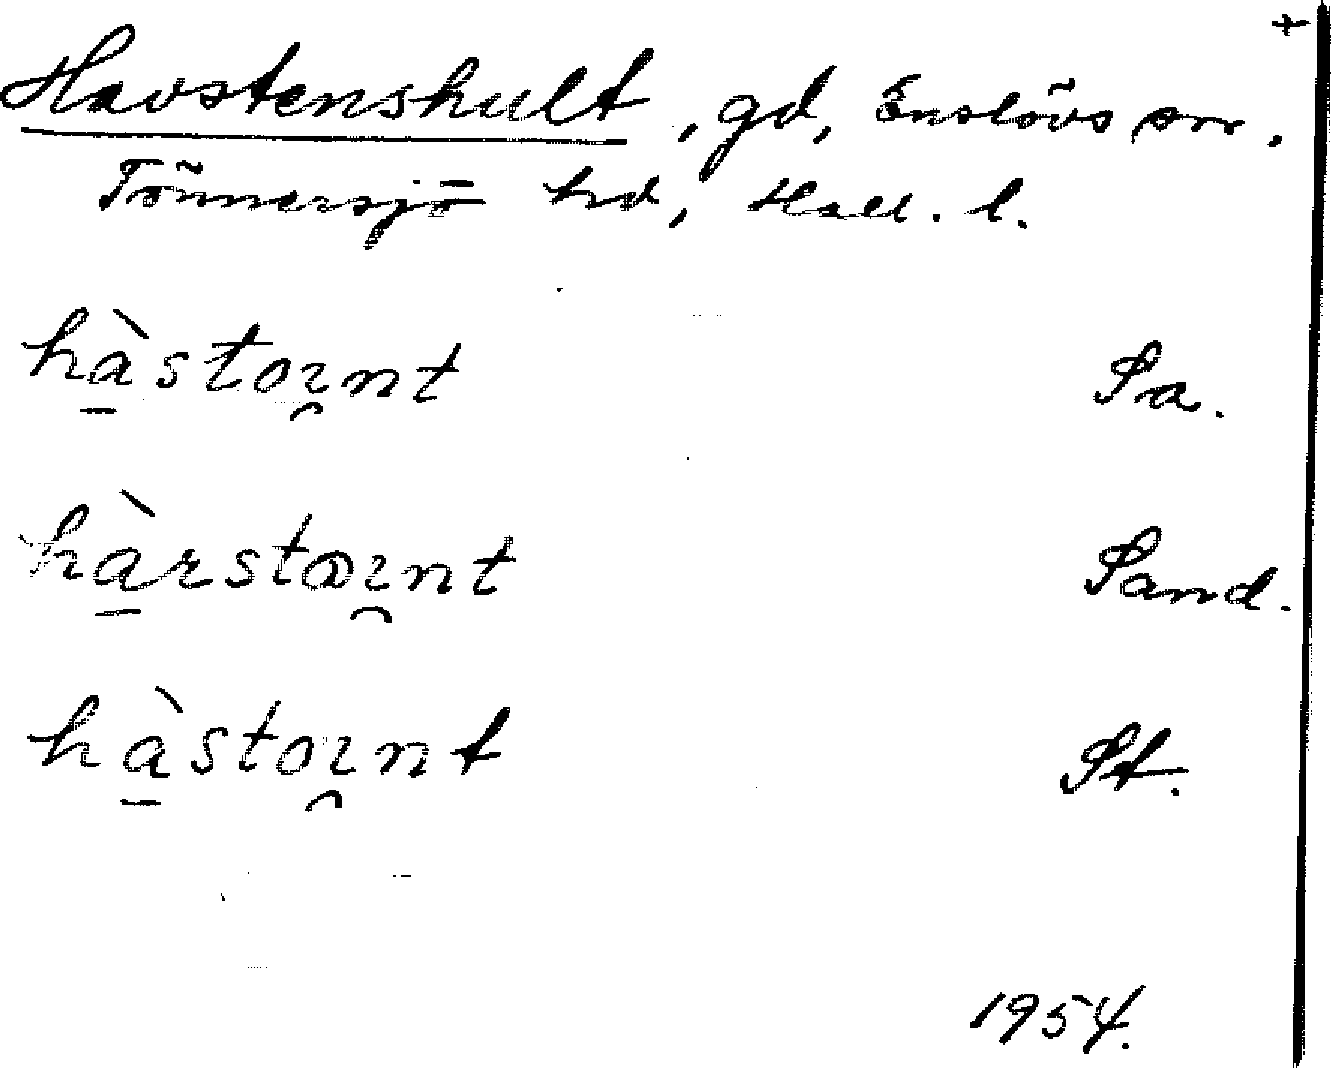 +
Havstenshult, gd, Enslövs sn.
Tönnersjö hd, Hall. l.
hàstoꝛnt Sa.
hàrstoꝛnt Sand.
hàstoꝛnt St.
1954.